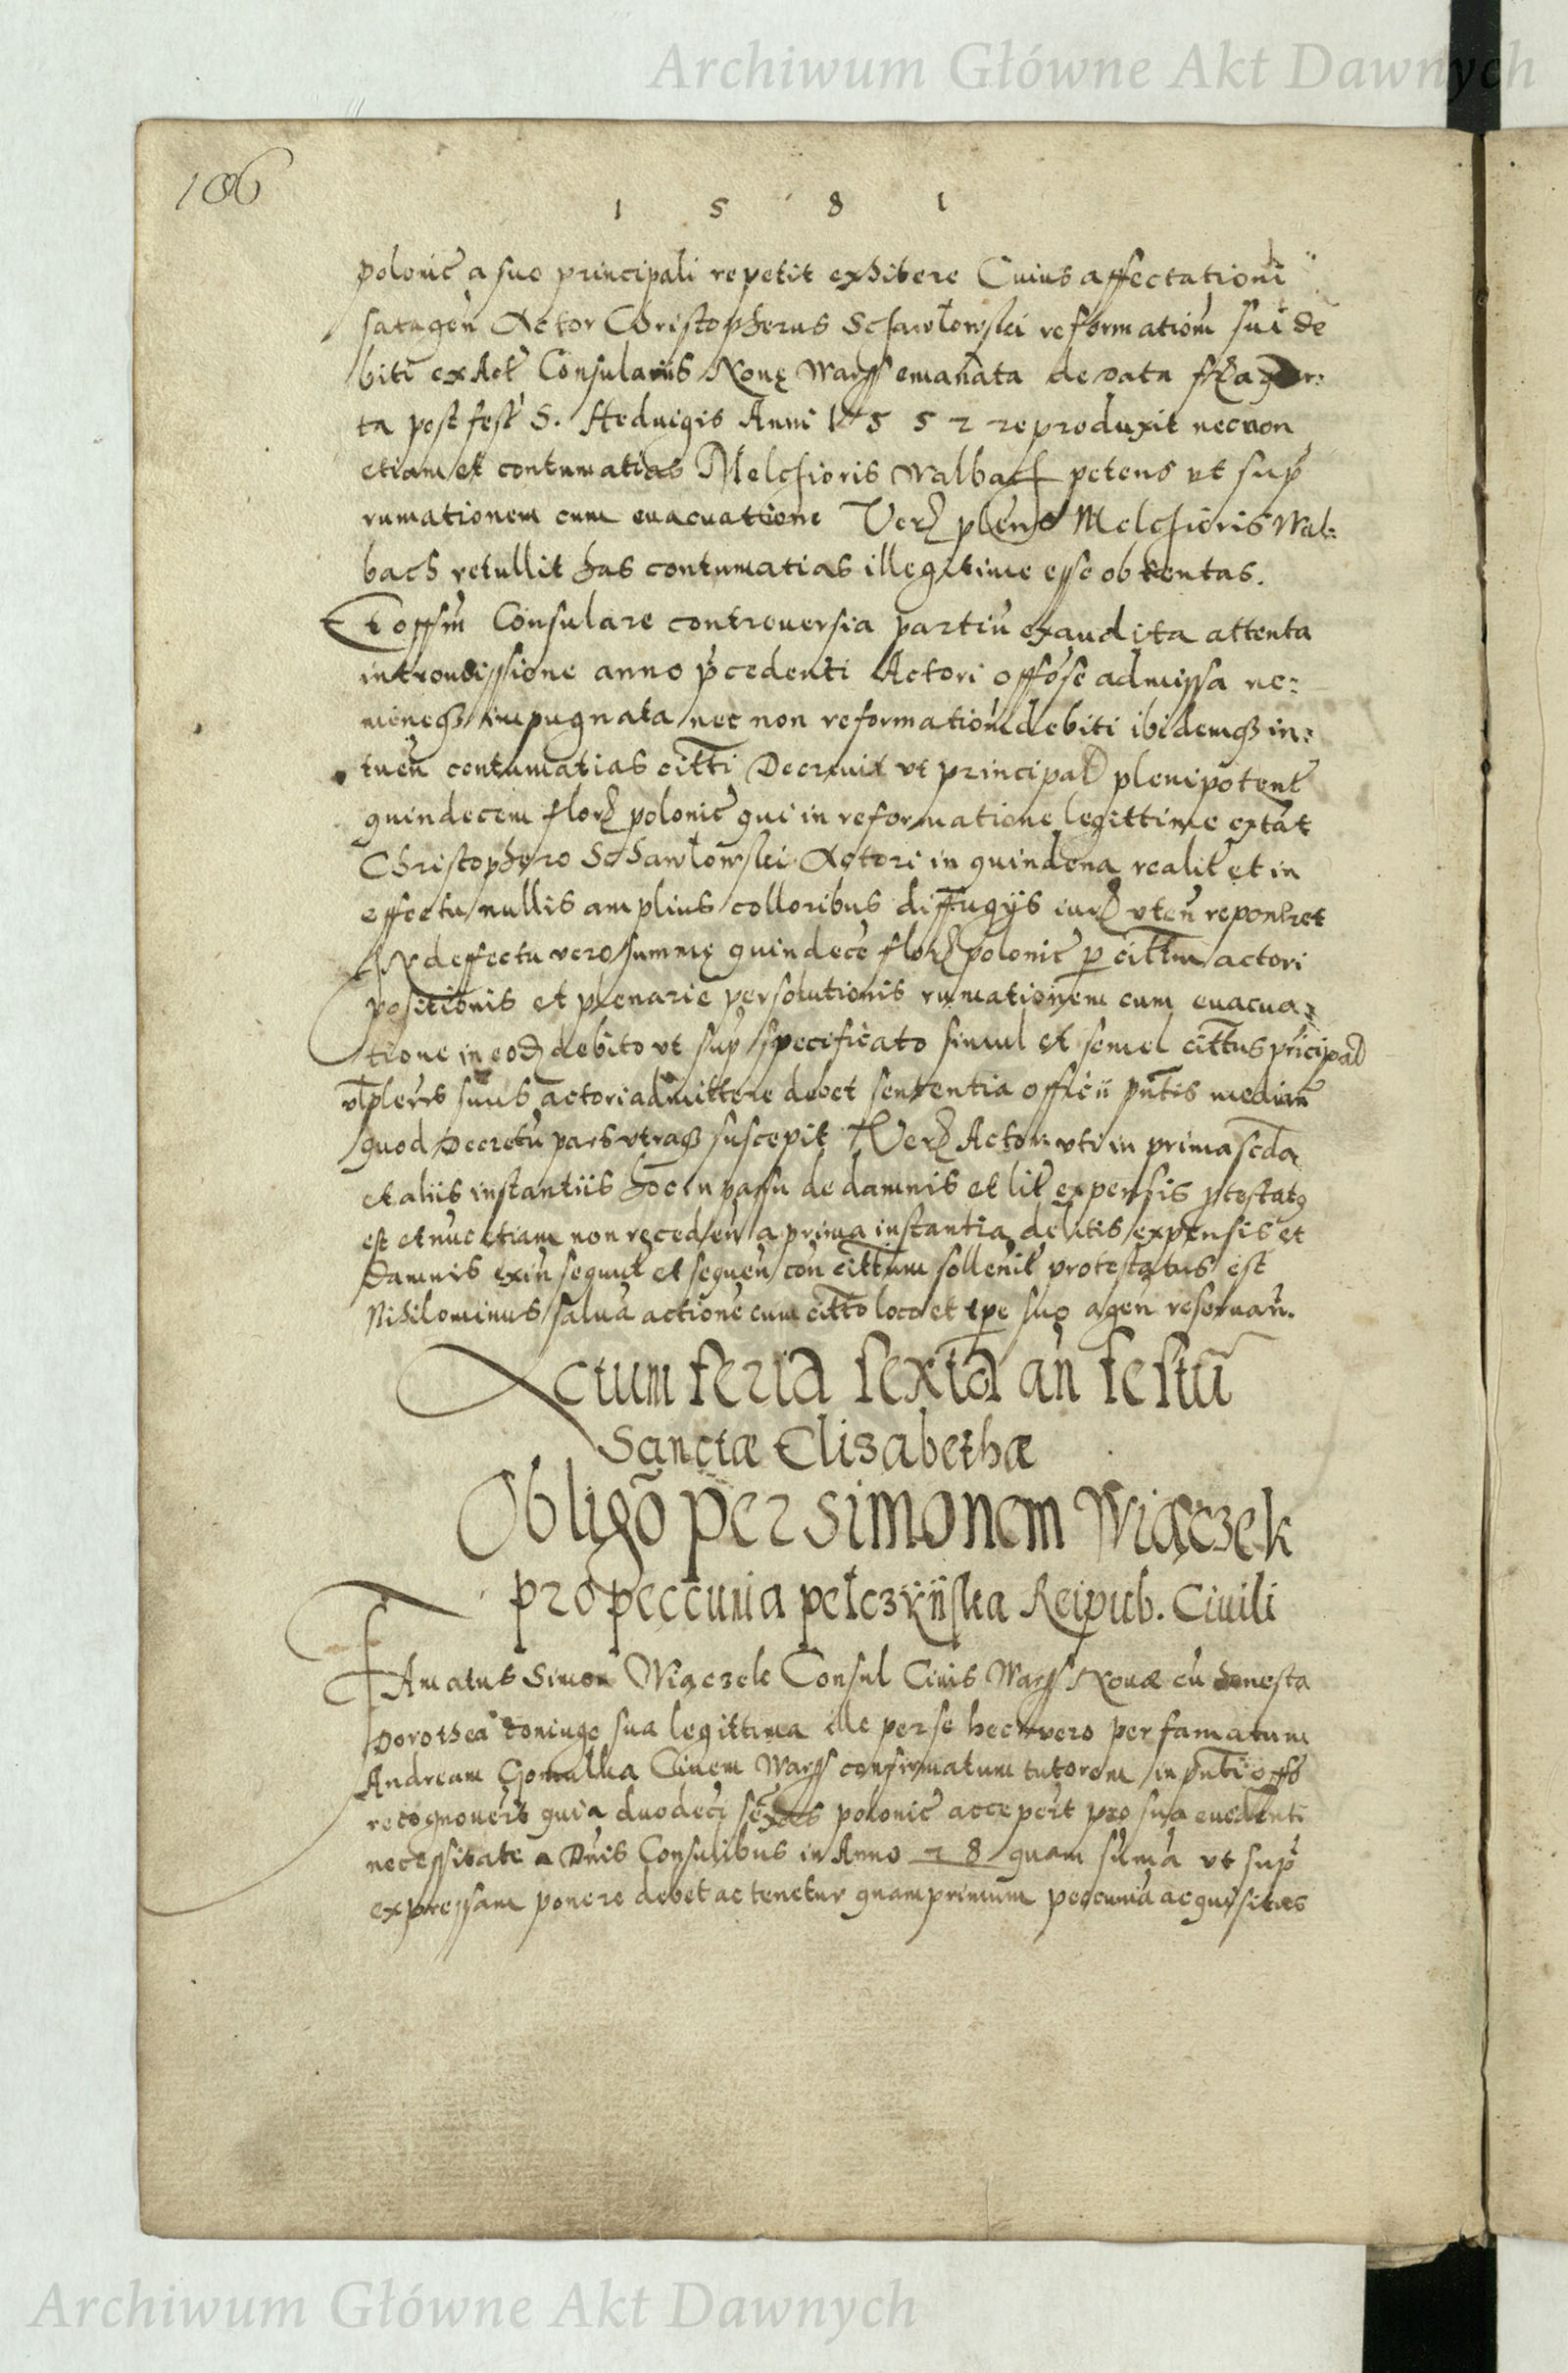 Archiwum Główne Akt Dawnych
106
1 5 8 1
polonic̃ a suo principali repetit exhibere Cuius affectationi
satagen̄ Actor Christopherus Schawłowski reformationẽ sui de
biti ex Act̃ Consularis Nouę Warss emanata de data
ta post fest̃ S. Heduigis Anni 1552 reproduxit necnon
etiam et contumatias Melchioris Walbach petens vt sup̃
rumationem cum euacuatione Ver̃ plen̄s Melchioris Wal:
bach retullit has contumatias illegitime esse obtentas.
Et offm̃ Consulare controuersia partiũ exaudita attenta
intromissione anno p̃cedenti Actori offõse admissa ne:
mineq3 impugnata nec non reformationẽ debiti ibidemq3 in:
tuen̄ contumatias citti Decreuit vt principal plenipotent̃
quindecim flor̃ polonic̃ qui in reformatione legittime extãt
Christophero Schawłowski Actori in quindena realit̃ et in
effectu nullis amplius colloribus diffugijs iur̃ vten̄ reponeret
In defectu vero summę quindecẽ flor̃ polonic̃ p cittum actori
positionis et plenarie persolutionis rumationem cum euacua:
tione in eod̃ debito vt sup̃ specificato simul et semel cittus pricipal
vl plen̄s suus actori admittere debet sententia officii pñtis median̄
quod Decretũ pars vtraq3 suscepit Ver̃ Actor vti in prima scda
et aliis instantiis hoc in passu de damnis et lit̃ expensis ptestatꝯ
est et nuc etiam non receden̄ a prima instantia de litis expensis et
damnis exin sequut̃ et sequen̄ con cittum sollenit̃ protestatus est
Nihilominus salua actione cum citto loco et tpe suo agen̄ reseruan̄.
Actum feria sexta an̄ festũ
Sanctæ Elisabethæ
Obligõ per Simonem Wiączek
pro peccunia pełczyńska Reipub. Ciuili
Famatus Simon Wiączek Consul Ciuis Warss Nouæ cũ honesta
Dorothea Coniuge sua legittima ille per se hec vero per famatum
Andream Gomulka Ciuem Warss confirmatum tutorem in pñti offo
recognouerũt quia duodecĩ sexães polonic̃ acceperũt pro sua euidenti
necessitate a Dñis Consulibus in Anno 28 quam sum̃a vt sup̃
expressam ponere debet ac tenetur quamprimum peccunia acquisitas
Archiwum Główne Akt Dawnych